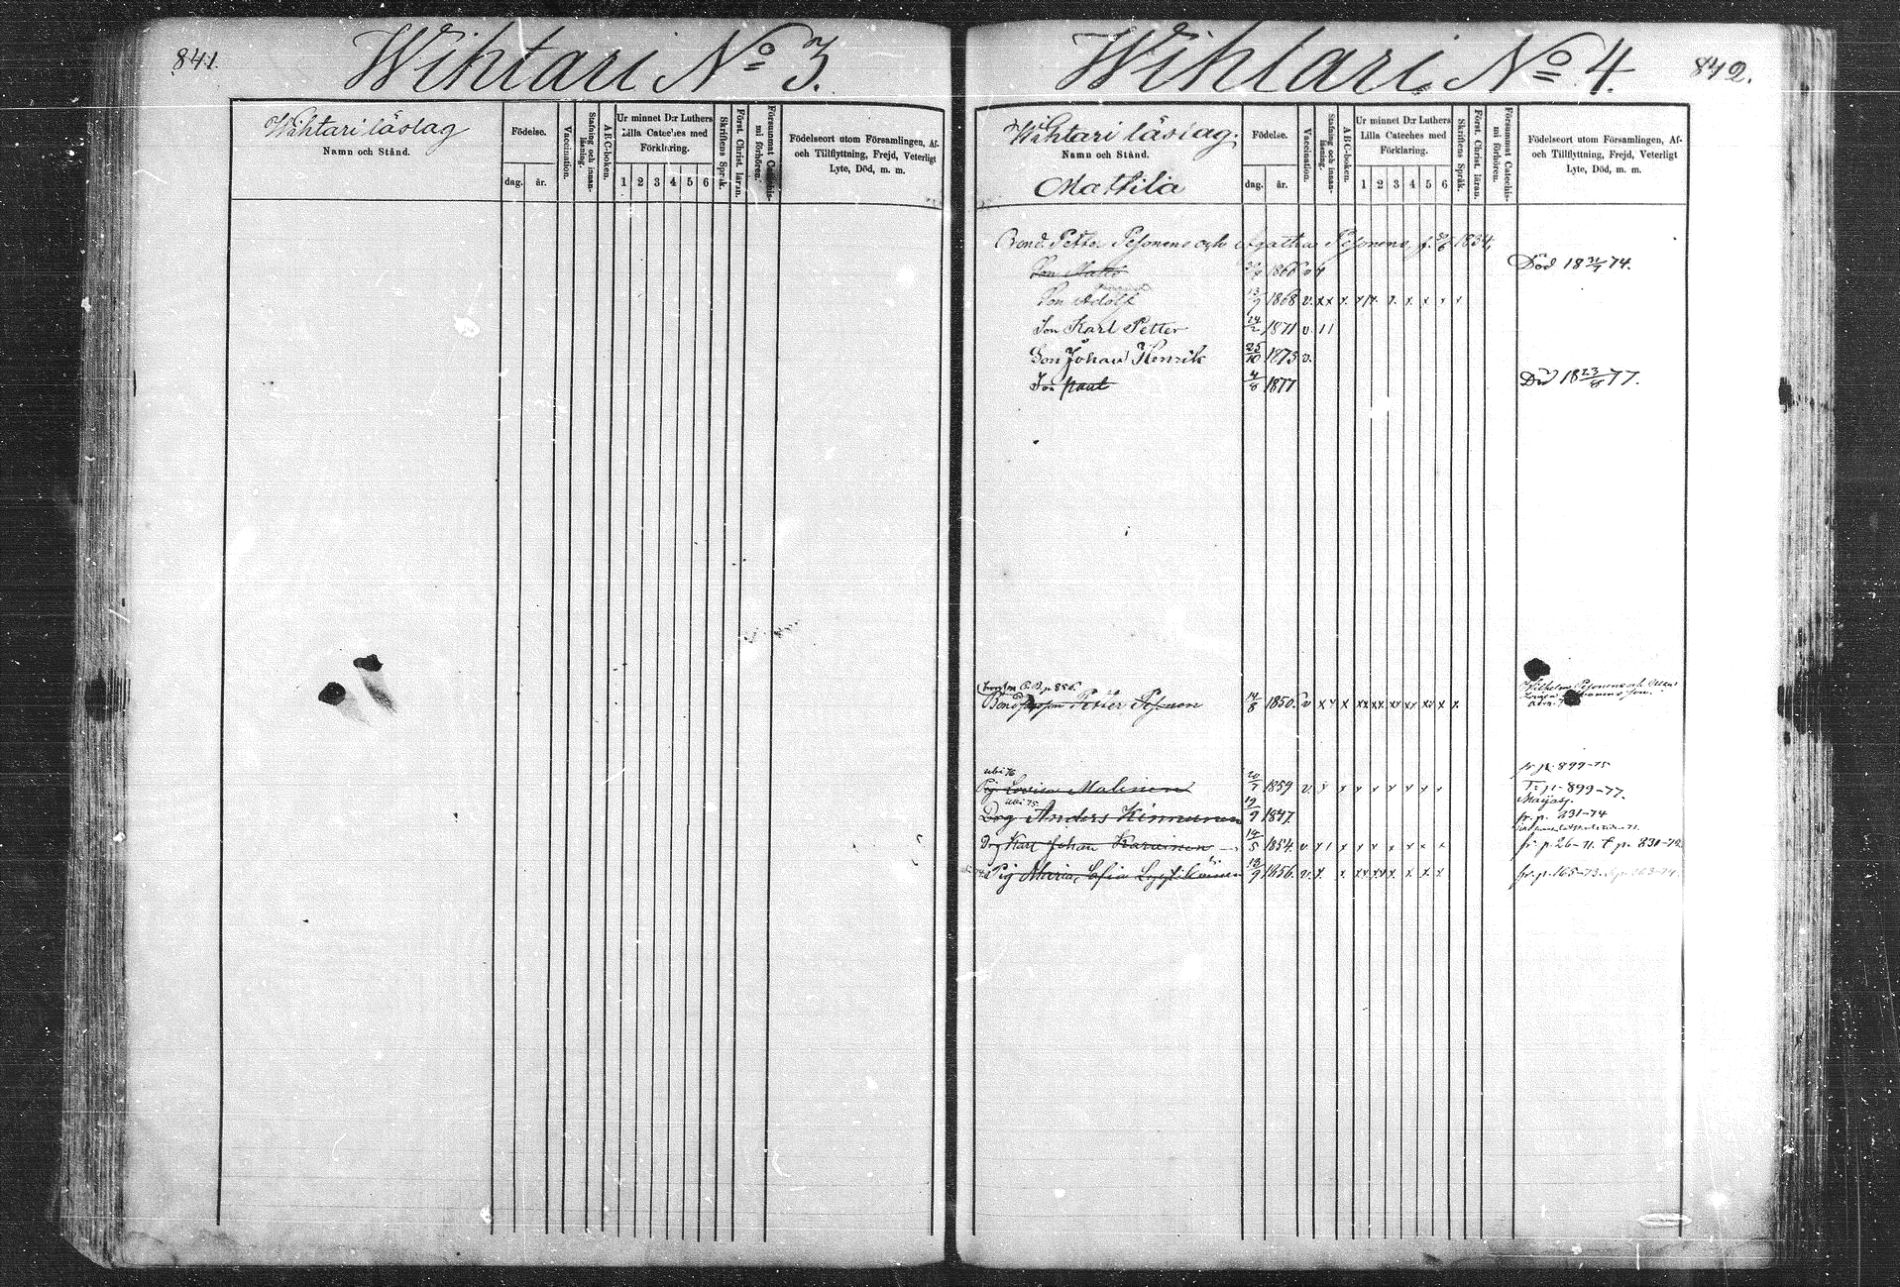 841.
Wihtari No 3.
Wihtari läslag
Namn och Stånd.
Födelse.
dag. år.
Vaccination.
Stafning och innanläsning.
ABC-boken.
Ur minnet D:r Luthers
Lilla Cateches med
Förklaring.
1 2 3 4 5 6
Skriftens Språk.
Först. Christ. läran.
Försummat Catechismi förhören.
Födelseort utom Församlingen, Af-
och Tillflyttning, Frejd, Veterligt
Lyte, Död, m. m.
Wihtari No 4.
842.
Wihtari läslag.
Namn och Stånd.
Mattila
Födelse.
dag. år.
Vaccination.
Stafning och innanläsning.
ABC-boken.
Ur minnet D:r Luthers
Lilla Cateches med
Förklaring.
1 2 3 4 5 6
Skriftens Språk.
Först. Christ. läran.
Försummat Catechismi förhören.
Födelseort utom Församlingen, Af-
och Tillflyttning, Frejd, Veterligt
Lyte, Död, m. m.
Bond. Petter Pesonens Agatha Pesonens 1834,
Son 1866 Död 18 74.
Son Adolf 13/9 1868 v. x x x
Son Karl Petter 24/2 1871 v. 11
Son Johan Henrik 25/10 1873 v.
Son Paul 4/8 1877 Död 18 23/8 77.
p 856.
Petter Pesonen 14/8 1850. v x x x xx xx xx xx xx x x
Wilhelm Pesonens
fr. p. 899-75
Pig Lovisa Malinen 20/7 1859 v. x x x x x x x x x T. p. 899-77.
ubi 75.
Drg Anders Kinnunen 19/9 1847 fr. p. 831-74
Drg Karl Johan Karvinen 14/5 1854. v x 1 x x x x x x x fr. p. 26-71. T. p. 831-72
Pig Maria Sofia 18/9 1856. v. x. x xx xx x x x x fr. p. 165-73.